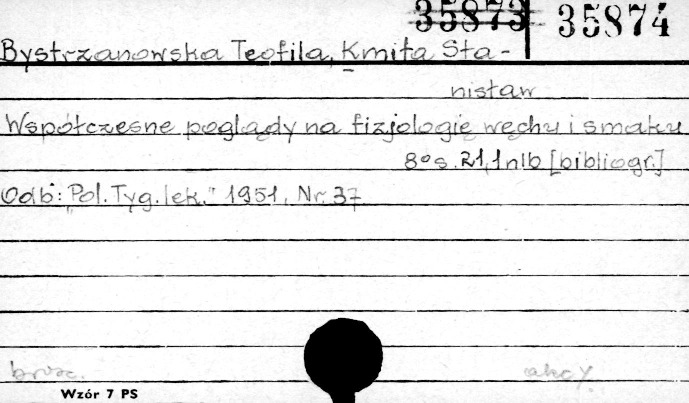 35873 35874
Bystrzanowska Teofila, Kmita Sta-
nisław
Współczesne poglądy na fizjologię węchu i smaku
8° s. 21, 1 nlb [bibliogr.]
Odb: „Pol. Tyg. lek." 1951, Nr. 37
brosz. akcy.
Wzór 7 PS